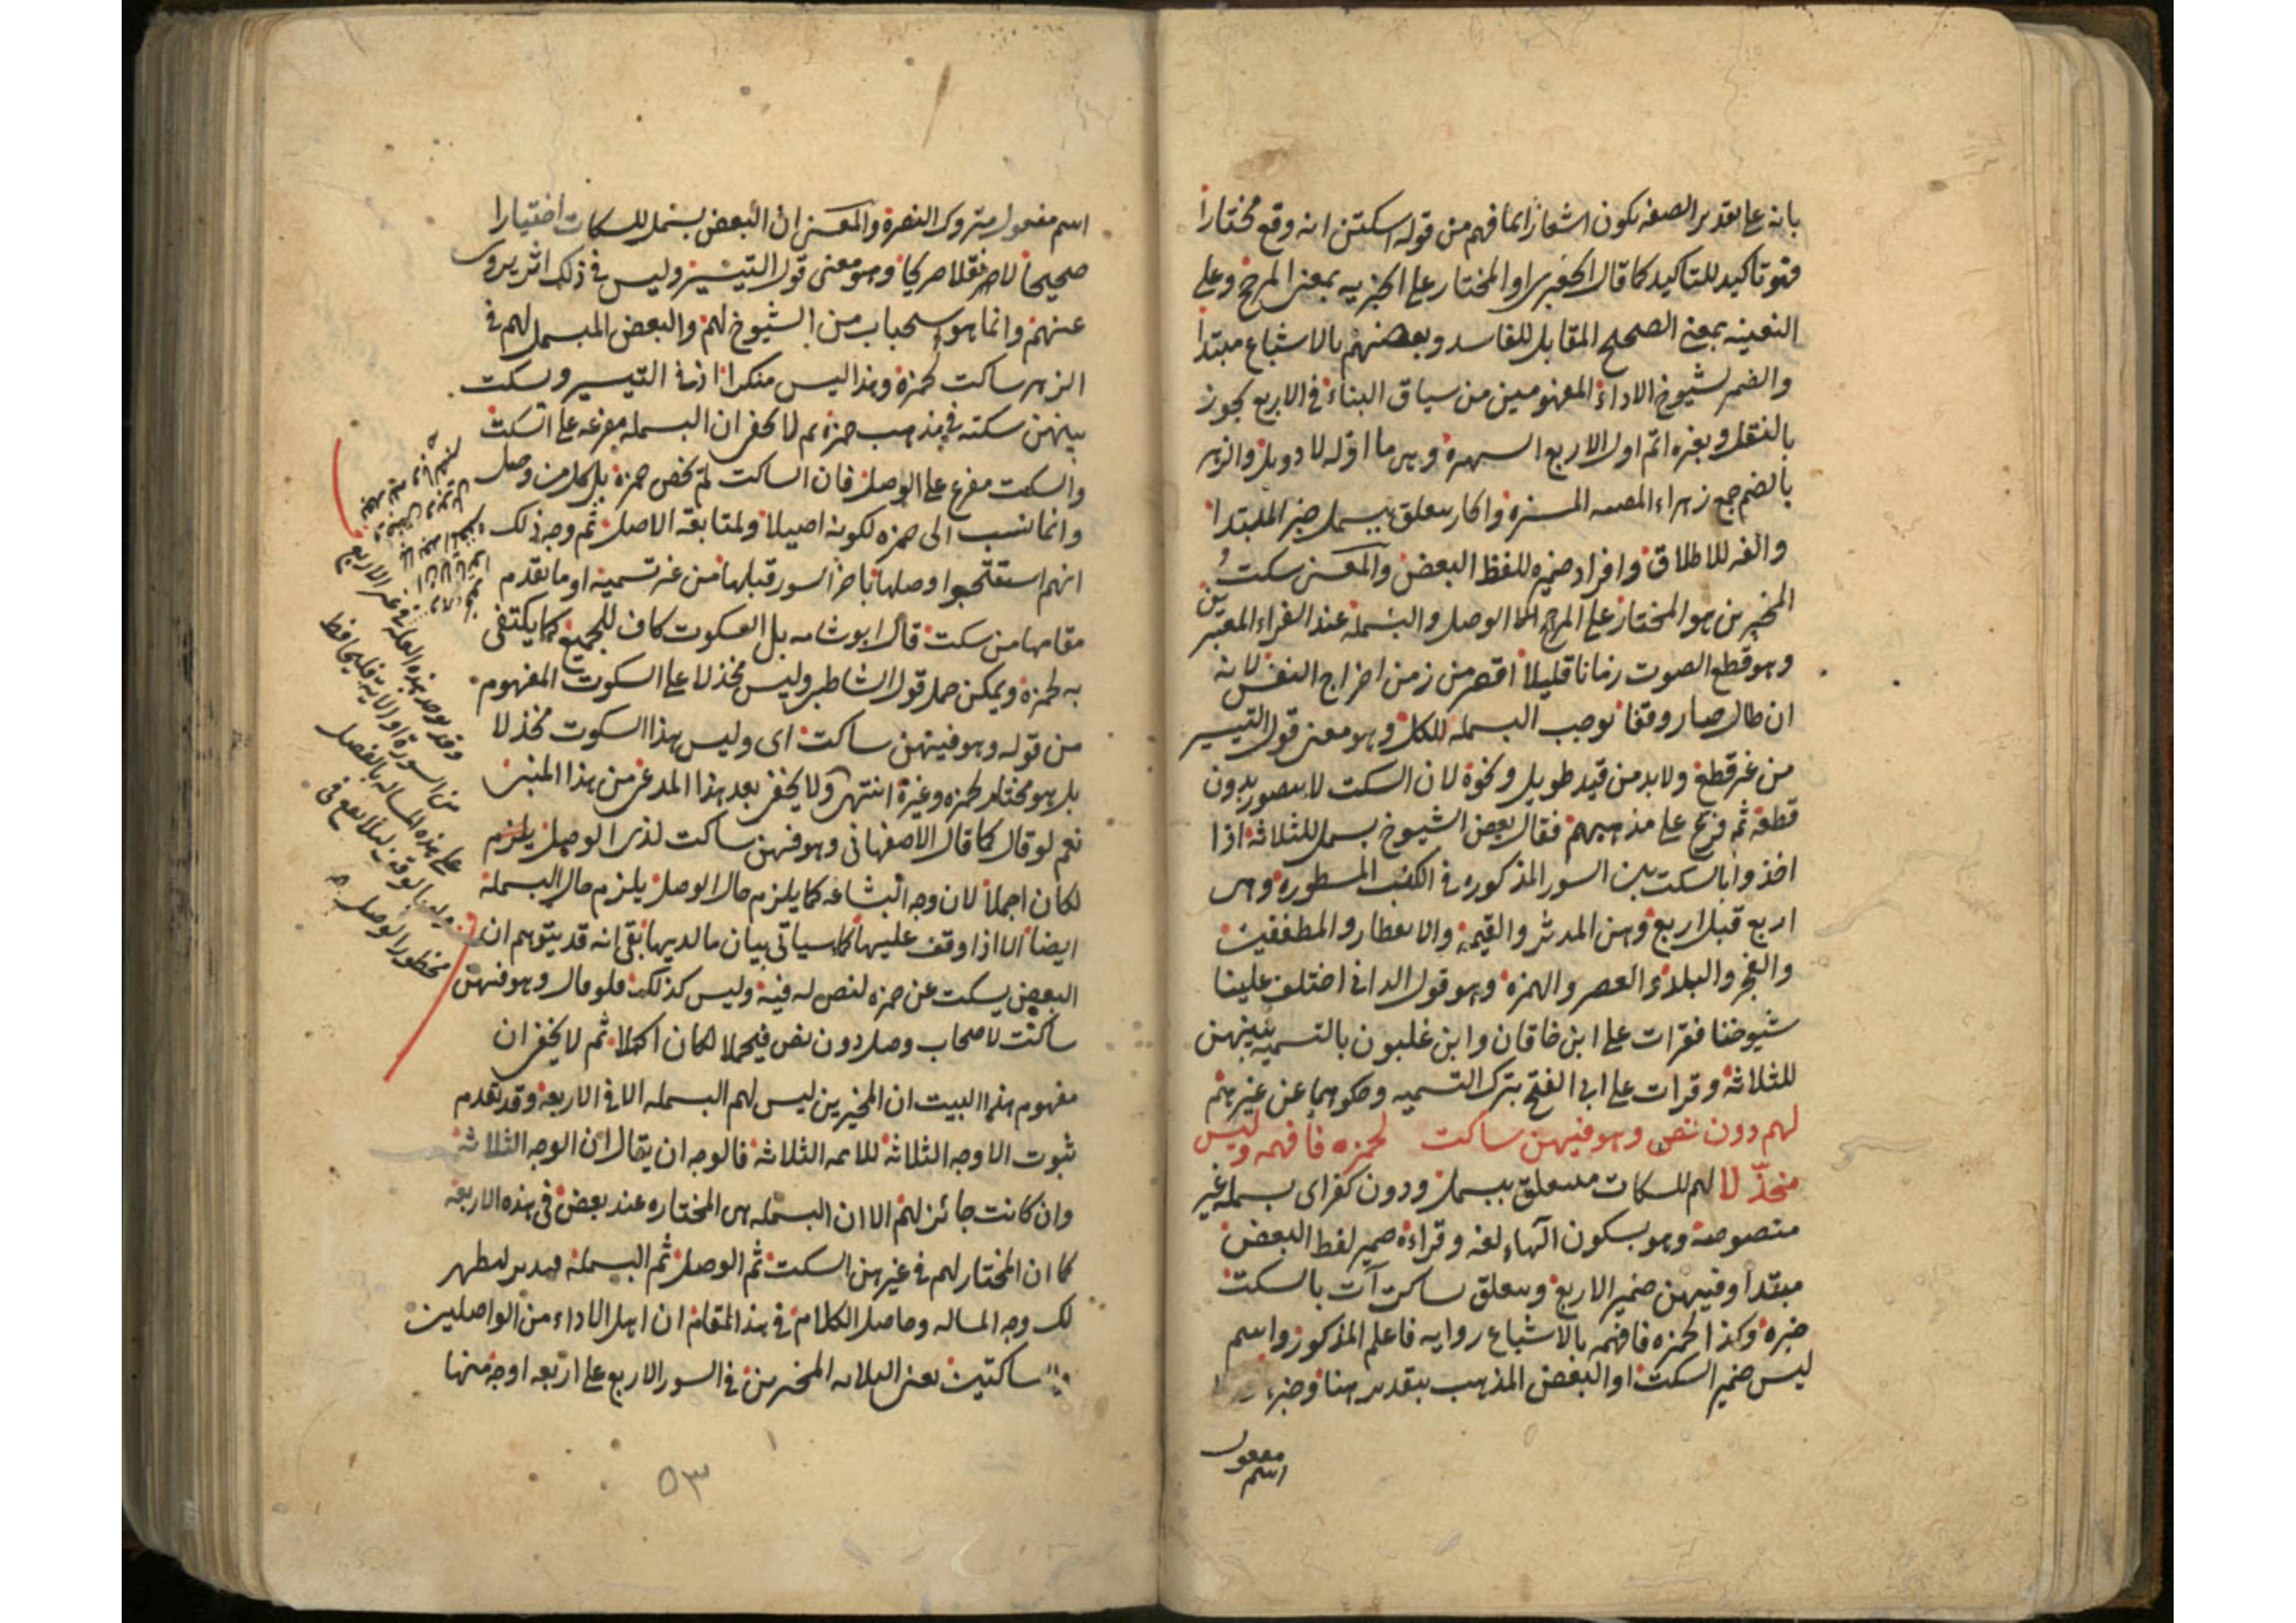 بانه على تقدير الصفة يكون اشعارا بما فهم من قوله اسكتن انه وقع مختارا
فهو تاكيد للتاكيد كما قال الجعبري او المختار على الخبرية بمعنى المرجح وعلى
النعتية بمعنى الصحيح المقابل للفاسد وبعضهم بالاشباع مبتدا
والضمير لشيوخ الاداء المفهومين من سياق البناء في الاربع يجوز
بالنقل وبغيره اتم اول الاربع الــزهرة وهي ما اوله لا وويل والزهر
بالضم جمع زهراء المضيئة المنيرة والجار متعلق ببسمل خبر المبتدا
والفه للاطلاق وافراد ضميره للفظ البعض والمعنى سكت
المخيرين هو المختار على المرجح اما الوصل والبسملة عند القراء المعتبرين
وهو قطع الصوت زمانا قليلا اقصر من زمن اخراج النفس لانه
ان طال صار وقفا يوجب البسملة للكل وهو معنى قول التيسير
من غير قطع ولابد من قيد طويل ونحوه لان السكت لا يتصور بدون
قطعه ثم فرع على مذهبيهم فقال بعض الشيوخ بسمل للثلاثة اذا
اخذوا بالسكت بين السور المذكورة في الكتب المسطورة وهي
اربع قبل اربع وهن المدثر والقيمة والانفطار والمطففين
والفجر والبلد والعصر والهمزة وهو قول الداني اختلف علينا
شيوخنا فقرات على ابن خاقان وابن غلبون بالتسمية بينهن
للثلاثة وقرات على ابي الفتح بترك التسمية وحكوهما عن غيرهم
لهم دون نص وهو فيهن ساكت لحمزة فافهمه وليس
مخذّلا لهم للسكات متعلق ببسمل ودون كغير اي بسملة غير
منصوصة وهو بسكون الهاء لغة وقراءة ضمير لفظ البعض
مبتدا وفيهن ضمير الاربع ومتعلق ساكت آت بالسكت
خبره وكذا لحمزه فافهمه بالاشباع روايه فاعلم المذكور واسم
ليس ضمير السكت او البعض المذهب بتقدير هنا وخبره
اسم مفعول
اسم مفعول متروك النصرة والمعنى ان البعض بسمل للسكات اختيارا
صحيحا لا نقلا صريحا وهو معنى قول التيسير وليس في ذلك اثر يروى
عنهم وانما هو استحباب من الشيوخ لهم والبعض المبسمل لهم في
الزهر ساكت لحمزة وهذا ليس منكرا اذ في التيسير ويسكت
بينهن سكتة في مذهب حمزه ثم لا يخفى ان البسملة مفرعه على السكت
والسكت مفرع على الوصل فان الساكت لم يخص حمزة بل كل من وصل
وانما نسب الى حمزه لكونه اصيلا ولمتابعة الاصل ثم وجه ذلك
انهم استقبحوا وصلها باخر السور قبلها من غير تسمية او ما تقدم
مقامها من سكت قال ابو شامه بل السكوت كاف للجميع كما يكتفى
به لحمزة ويمكن حمل قول الشاطبي وليس مخذلا على السكوت المفهوم
من قوله وهو فيهن ساكت اي وليس هذا السكوت مخذلا
بل هو مختار لحمزه وغيره انتهى ولا يخفى بعد هذا المدعى من هذا المبنى
نعم لو قال كما قال الاصفهاني وهو فيهن ساكت لذي الوصل يلزم
لكان اجملا لان وجه البشاعه كما يلزم حال الوصل يلزم حال البسملة
ايضا الا اذا وقف عليها كما سياتي بيان ما لديها بقي انه قد يتوهم ان
البعض يسكت عن حمزه لنص له فيه وليس كذلك فلو قال وهو فيهن
ساكت لاصحاب وصل دون نص فيحملا لكان اكملا ثم لا يخفى ان
مفهوم هذا البيت ان المخيرين ليس لهم البسملة الا في الاربعة وقد تقدم
ثبوت الاوجه الثلاثة للائمه الثلاثة فالوجه ان يقال ان الوجه الثلاثة
وان كانت جائز لهم الا ان البسمله هي المختاره عند بعض في هذه الاربعة
كما ان المختار لهم في غيرهن السكت ثم الوصل ثم البسملة فتدبر ليظهر
لك وجه المساله وحاصل الكلام في هذا المقام ان اهل الاداء من الواصلين
ساكتين يعني الثلاثه المخيرين في السور الاربع على اربعه اوجه منها
وقد يوجد هذه العلة في غير الاربع
من السورة او الآية فليحافظ
على هذه المساله بالفصل
بالوقف لئلا يقع في
محظور الوصل
٥٣